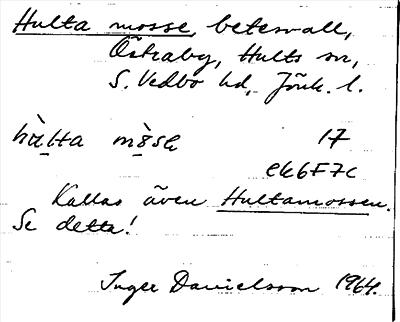 Hulta mosse, betesvall,
Östraby, Hults sn,
S. Vedbo hd, Jönk. l.
hùlta mòsɐ 17
ek6F7c
Kallas även Hultamossen.
Se detta!
Inger Danielsson 1964.